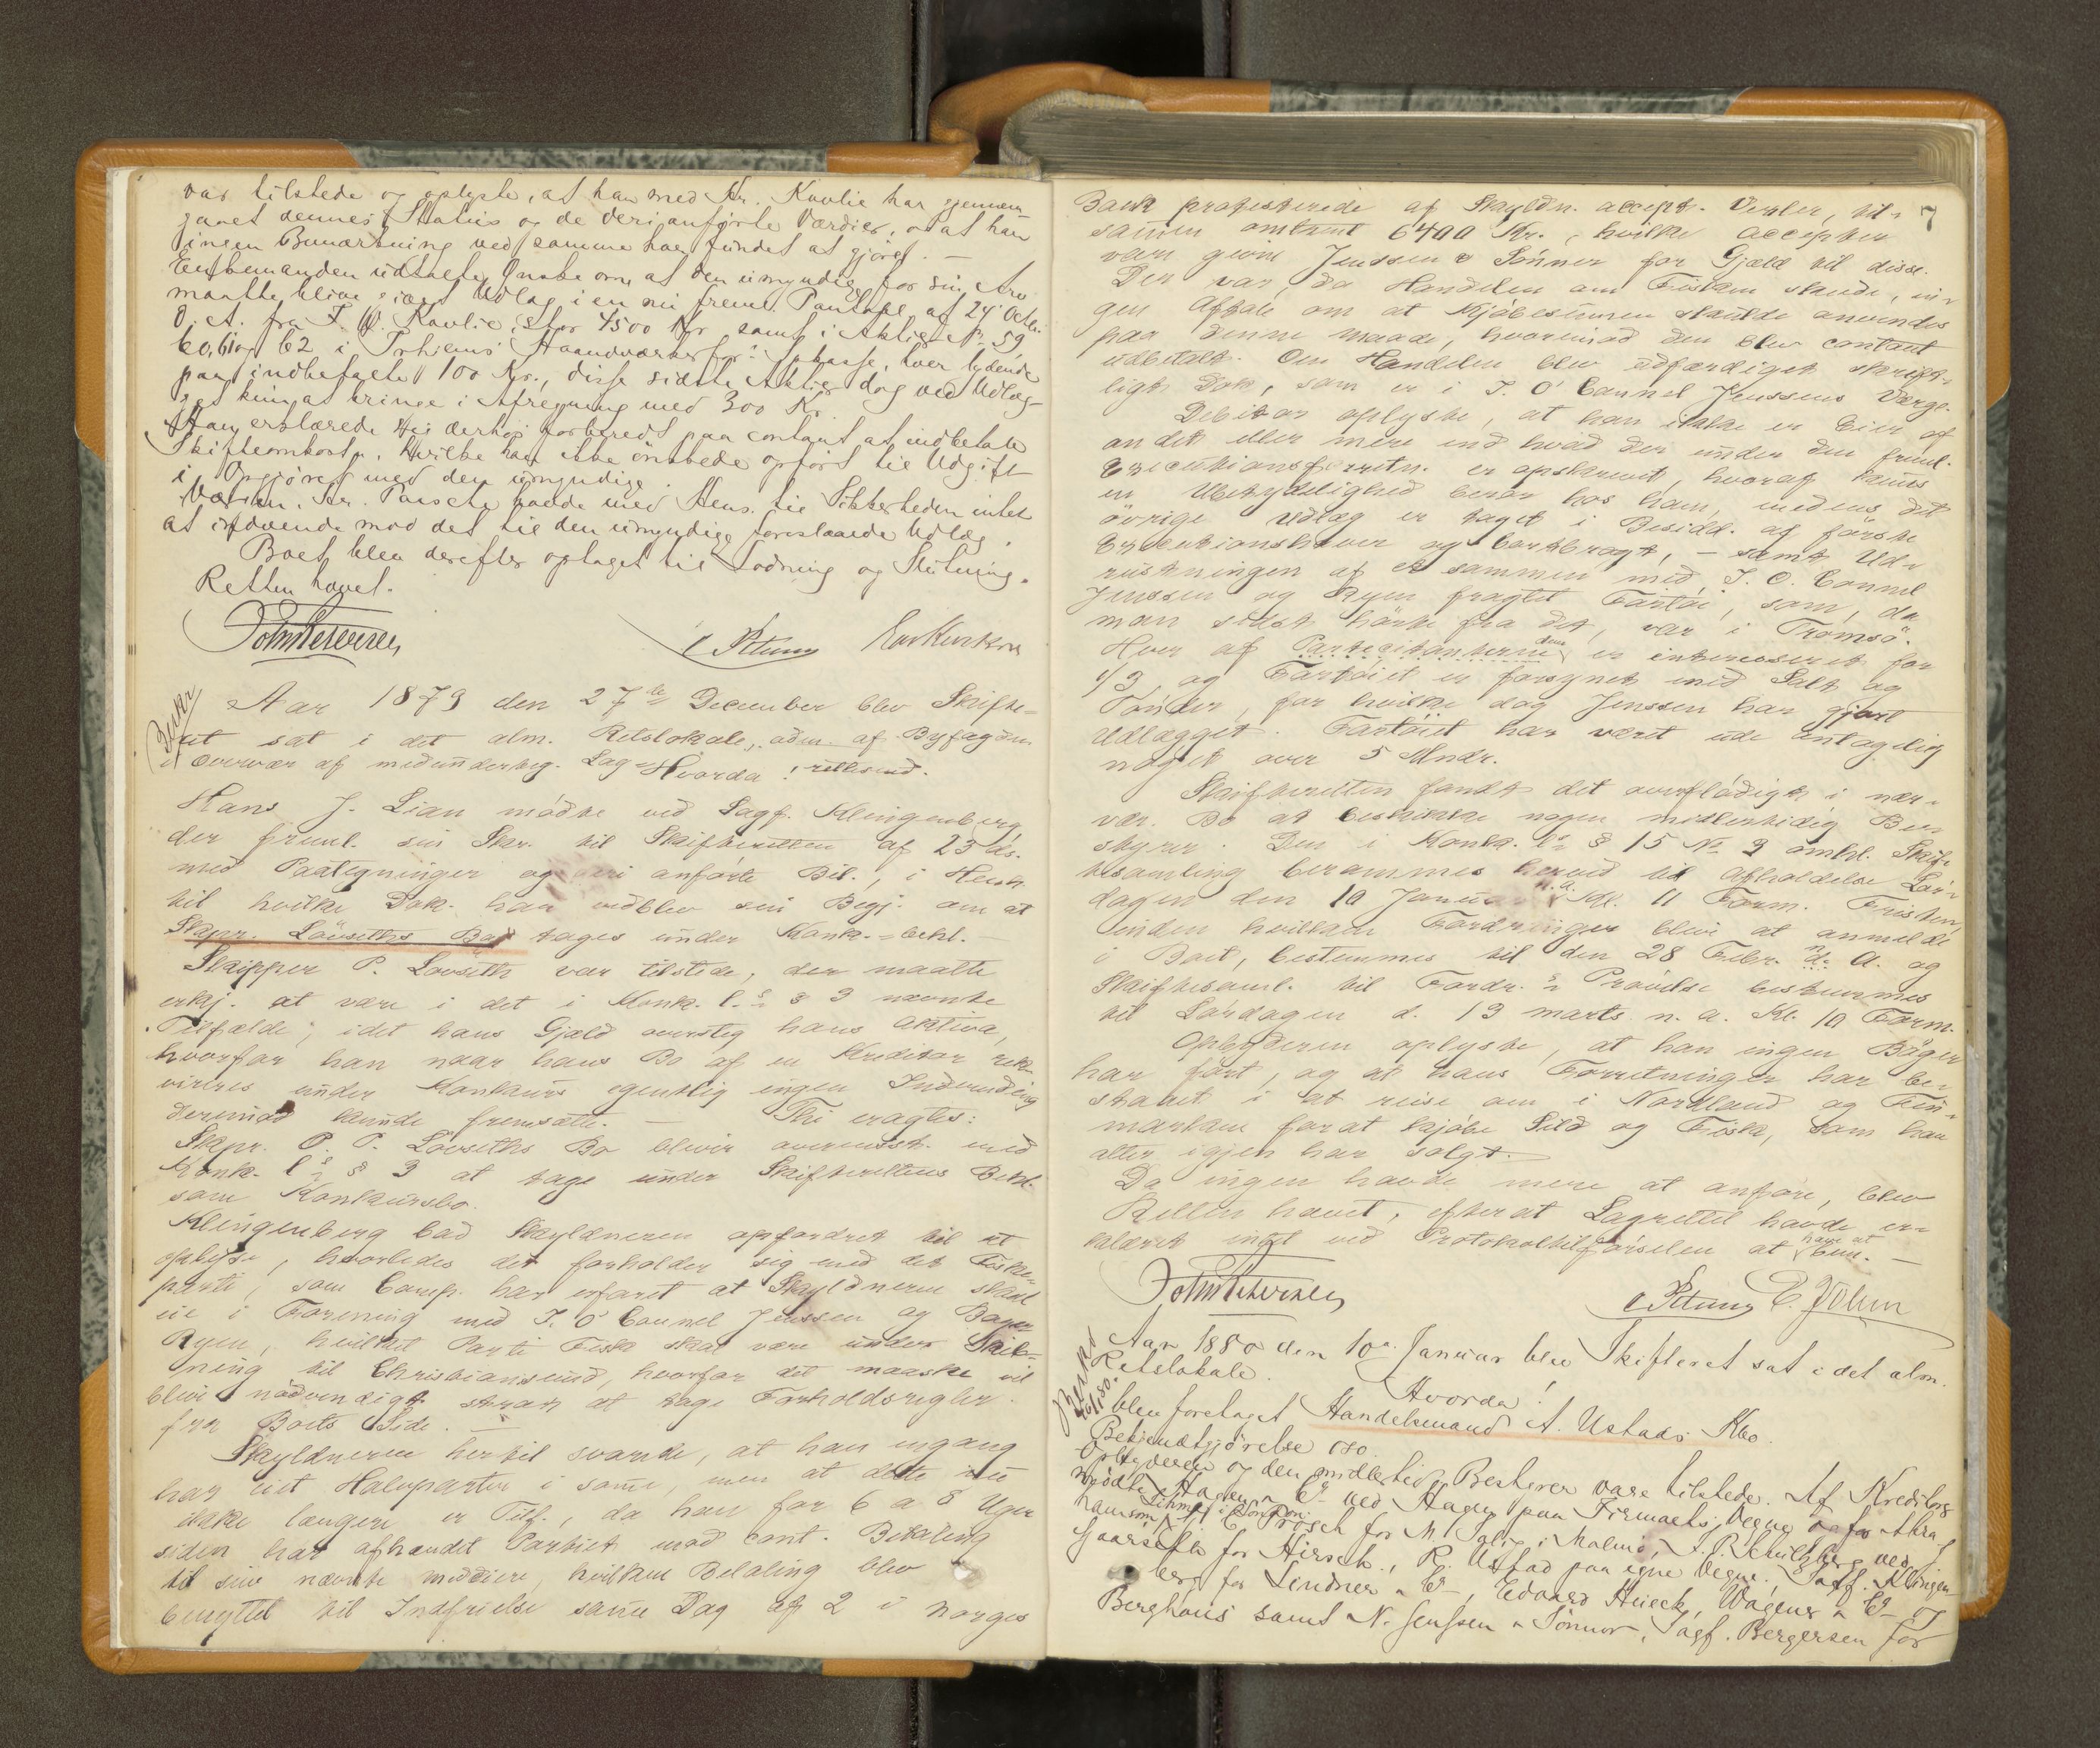 var tilstede og oplyste, at han med Hr. Kavlie har gjennem
gaaet dennes Status og de deri anførte Værdier, og at han
ingen Bemærkning ved samme har fundet at gjøre. —
Enkemanden udtalte Ønske om at den umyndige for sin Arv
maatte blive givet Udlag i en nu freml. Pantobl. af 24 Octbr.
d. A. fra F. Kavlie, stor 4500 Kr samt i Aktier No 59
60, 61 og 62 i Trhjems Haandværkerfor: Spkasse, hver lydende
paa indbetalt 100 Kr., disse sidste Aktier dog ved Udlæg
get kun at bringe i Afregning med 300 Kr.
Han erklærede sig derhos forberedt paa contant at indbetale
Skifteomkostn., hvilke han ikke ønskede opført til Udgift
i Opgjøret med den umyndige.
Værgen, Hr. Paasche havde med Hens. til Sikkerheden intet
at indvende mod det til den umyndige foreslaaede Udlæg.
Boet blev derefter optaget til Lodning og Slutning.
Retten hævet.
Aar 1879 den 27de December blev Skifte-
ret sat i det alm. Retslokale, adm. af Byfogden
i Overvær af medunderteg. Lag- Hvorda! rettesmd.
Hans J. Lian mødte ved Sagf. Klingenberg,
der freml. sin Skr. til Skifteretten af 23 ds.
med Paategninger og deri anførte Bil., i Hensh.
til hvilke Dok. han vedblev sin Begj. om at
Skpr. Løvseths Bo tages under Konk.-behl.
Skipper P. Løvseth var tilstede, der maatte
erkj. at være i det i Konk. l. § 3 nævnte
Tilfælde, idet hans Gjæld oversteg hans Aktiva,
hvorfor han naar hans Bo af en Kreditor rek-
vireres under Konkurs egentlig ingen Indvending
derimod kunde fremsætte. — Thi eragtes:
Skpr. O. P. Løvseths Bo bliver overensst. med
Konk. l. § 3 at tage under Skifterettens Behl.
som Konkursbo.
Klingenberg bad Skyldneren opfordret til at
oplyse, hvorledes det forholder sig med det Fiske-
parti, som Comp. har erfaret at Skyldneren skal
eie i Forening med J. O' Connel Jenssen og
Ryen, hvilket Parti Fisk skal være under Skib-
ning til Christiansund, hvorfor det maaske vil
blive nødvendigt strax at tage Forholdsregler
fra Boets Side. —
Skyldneren hertil svarede, at han engang
har eiet Halvparten i samme, men at dette nu
ikke længere er Tilf., da han for 6 a 8 Uger
siden har afhændet Partiet mod cont. Betaling
til sine nævnte Meddiere, hvilken Betaling blev
benyttet til Indfrielse samme Dag af 2 i Norges
7
Bank protesterede af Skyldn. accept. Vexler, til-
sammen omtrent 6400 Kr., hvilke accepter
vare givne Jenssen & Sønner for Gjæld til disse.
Der var, da Handelen om Fisken skede, in-
gen Aftale om at Kjøbesummen skulde anvendes
paa denne Maade, hvorimod den blev contant
udbetalt. Om Handelen blev udfærdiget skrift-
ligt Dok., som er i J. O' Connel Jenssens Værge.
Debitor oplyste, at han ikke er Eier af
andet eller mere end hvad der under den freml.
Executionsforretn. er opskrevet, hvoraf kuns
en Ubetydelighed beror hos ham, medens det
øvrige Udlæg er taget i Besidd. af første
Executionshaver og bortbragt, — samt Ud-
rustningen af et sammen med J. O. Connel
Jenssen og Ryen fragtet Fartøi, som, da
man sidst hørte fra det, var i Tromsø.
Hver af Participanterne er interesseret for
1/3, og Fartøiet er forsynet med Salt og
Tønder, for hvilke dog Jenssen har gjort
Udlægget. Fartøiet har været ude antagelig
noget over 5 Mndr.
Skifteretten fandt det overflødigt i nær-
vær. Bo at beskikke nogen midlertidig Be-
styrer. Den i Konk. l. § 15 No 3 omhl. Skif-
tesamling berammes herved til Afholdelse Lør-
dagen den 10 Januar n. a. Kl. 11 Form. Fristen,
inden hvilken Fordringer blive at anmelde
i Boet, bestemmes til den 28 Febr. n. A. og
Skiftesaml. til Fordr.s Prøvelse bestemmes
til Lørdagen d. 13 marts n. a. Kl. 10 Form.
Opbyderen oplyste, at han ingen Bøger
har ført, og at hans Forretninger har be-
staaet i at reise om i Nordland og Fin-
marken forat kjøbe Sild og Fisk, som han
atter igjen har solgt.
Da ingen havde mere at anføre, blev
Retten hævet, efterat Lagrettet havde er-
klæret intet ved Protokoltilførselen at have at bem. —
Aar 1880 den 10. Januar blev Skifteret sat i det alm.
Retslokale. Hvorda!
blev foretaget Handelsmand A. Ustads Kbo.
Bekjendtgjørelse
Opbyderen og den midlertid. Bestyrer vare tilstede. Af Kreditorer
mødte Hagen & Co ved Hagen paa Firmaets Vegne og for Abra
hamson, C. Prösch for M. Salig i Malmø, ved J.
for Hirsch, R. Ustad paa egne Vegne. Sagf. Klingen-
berg for Lindner & Co, Edvard Hueck, Wagener & Co og
Berghaus samt N. Jenssen & Sønner, Sagf. Bergersen for